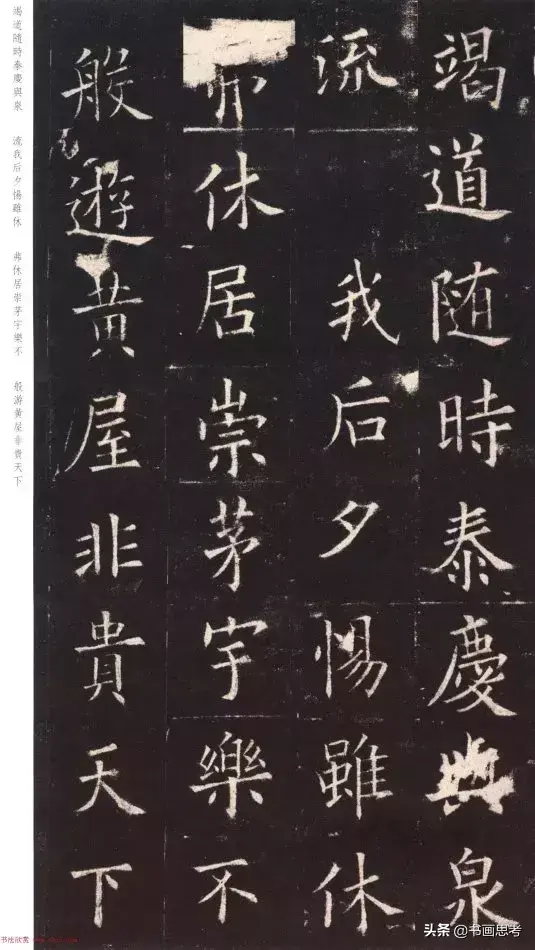 竭道随時泰慶與泉
流我后夕惕雖休
弗休居崇茅宇樂不
般遊黄屋非貴天下
竭道隨時泰慶與泉 流我后夕惕雖休 弗休居崇茅宇樂不 般游黄屋非貴天下
书法欣赏
头条@书画思考